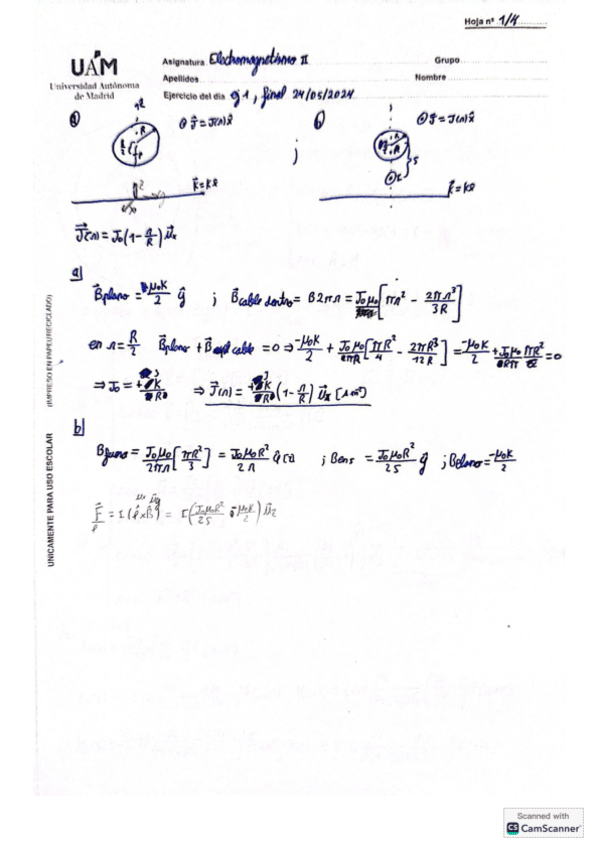 Hoja nº 1/4
UAM
Universidad Autónoma
de Madrid
Asignatura Electromagnetismo II Grupo
Apellidos Nombre
Ejercicio del día ej 1, final 24/05/2024
a)
R
R/2
⊙ J⃗ = J(r) x̂
K⃗ = K x̂
;
b)
R
⊙ J⃗ = J(r) x̂
S
K⃗ = K x̂
J⃗(r) = J₀(1 - r/R) u⃗ₓ
a)
B⃗plano = -μ₀K/2 ŷ ; B⃗cable dentro = B 2πr = J₀μ₀ [πr² - 2πr³/3R]
en r = R/2 B⃗plano + B⃗ cable = 0 ⇒ -μ₀K/2 + J₀μ₀/2πR [πR²/4 - 2πR³/12R] = -μ₀K/2 + J₀μ₀ πR²/ = 0
⇒ J₀ = + K/R ⇒ J⃗(r) = + K/R (1 - r/R) u⃗ₓ
b)
Bfuera = J₀μ₀/2πr [πR²/3] = J₀μ₀R²/2r ; Ben s = J₀μ₀R²/2S ŷ ; Bplano = -μ₀K/2
F⃗/ℓ = I (ℓ⃗ × B⃗) = I (J₀μ₀R²/2S - μ₀K/2) u⃗z
UNICAMENTE PARA USO ESCOLAR (IMPRESO EN PAPEL RECICLADO)
Scanned with
CS CamScanner